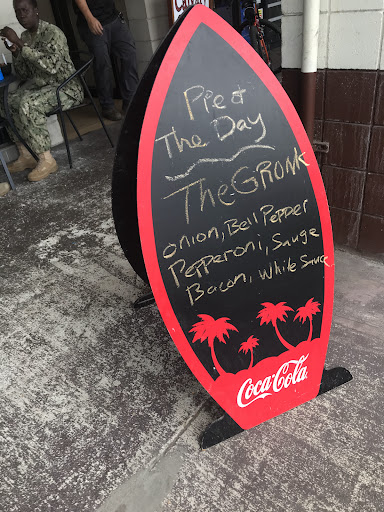 Pie of
The Day
The GRONK
Onion, Bell Pepper
Pepperoni, Sauge
Bacon, White Sauce
Coca-Cola